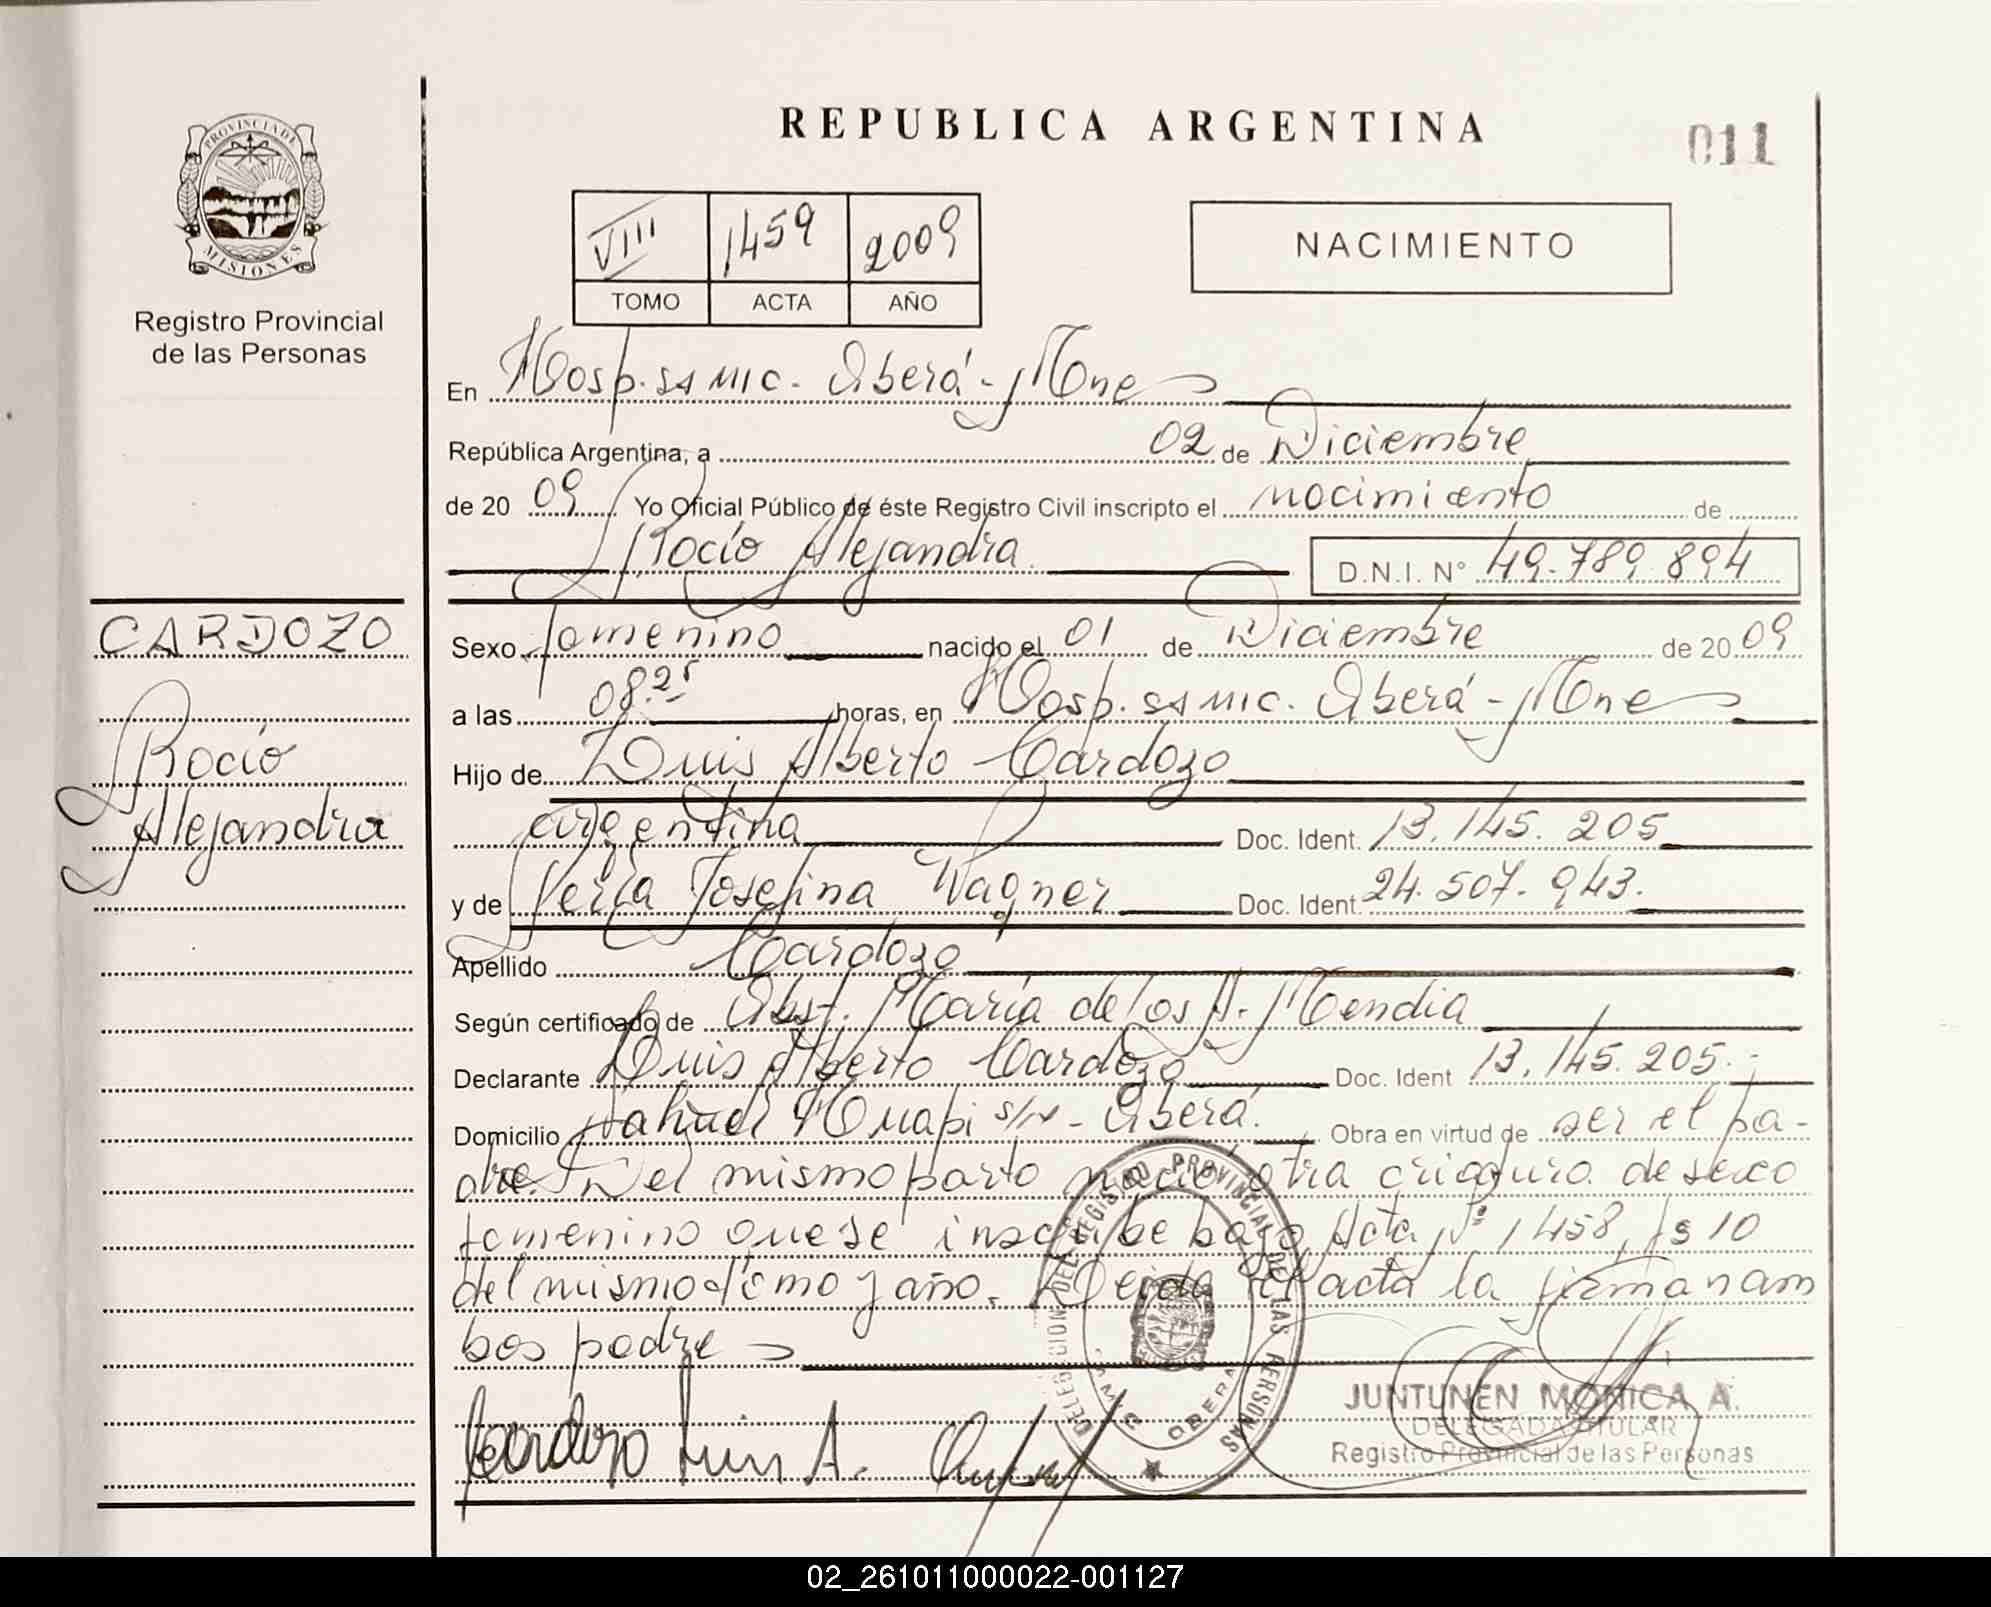 REPUBLICA ARGENTINA
011
PROVINCIA DE
MISIONES
Registro Provincial
de las Personas
VIII 1459 2009
TOMO ACTA AÑO
NACIMIENTO
En Hosp. SAMIC. Oberá - Mnes
República Argentina, a 02 de Diciembre
de 20 09 Yo Oficial Público de éste Registro Civil inscripto el nacimiento de
Rocío Alejandra D.N.I. N° 49.789.894
CARDOZO
Rocío
Alejandra
Sexo femenino nacido el 01 de Diciembre de 20 09
a las 08.25 horas, en Hosp. SAMIC. Oberá - Mnes
Hijo de Luis Alberto Cardozo
argentina Doc. Ident. 13.145.205
y de Josefina Wagner Doc. Ident. 24.507.943.
Apellido Cardozo
Según certificado de Obst. María de los A. Mendia
Declarante Luis Alberto Cardozo Doc. Ident 13.145.205.-
Domicilio s/n - Oberá. Obra en virtud de ser el pa-
dre. Del mismo parto nació otra criatura de sexo
femenino que se inscribe bajo Acta Nº 1458, fs 10
del mismo tomo y año. Leida el acta la firman am
bos padre
DELEGACION DEL REGISTRO PROVINCIAL DE LAS PERSONAS
OBERA
Cardozo Luis A.
JUNTUNEN MONICA A.
DELEGADA TITULAR
Registro Provincial de las Personas
02_261011000022-001127